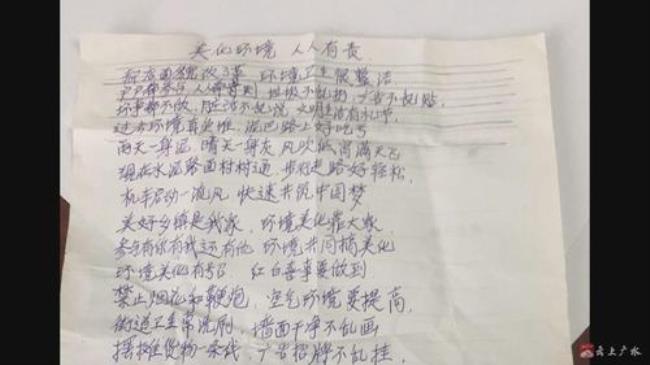 美化环境 人人有责
环境卫生很整洁
户户都参与,人人都有责 垃圾不乱扔,广告不乱贴,
坏事都不做,脏话不乱说 文明生活有礼节.
过去环境真头难,泥巴路上好吃亏
雨天一身泥 晴天一身灰 风吹 满天飞
现在水泥路面村村通,步行走路好轻松,
机车启动一溜风 快速共筑中国梦
美好乡镇是我家,环境美化靠大家
参与有你有我还有他 环境共同搞美化
环境美化有号召 红白喜事要做到
禁止烟花和鞭炮,空气环境要提高,
街道卫生常洗刷,墙面干净不乱画
摆摊货物一条线,广告招牌不乱挂,
云上广水